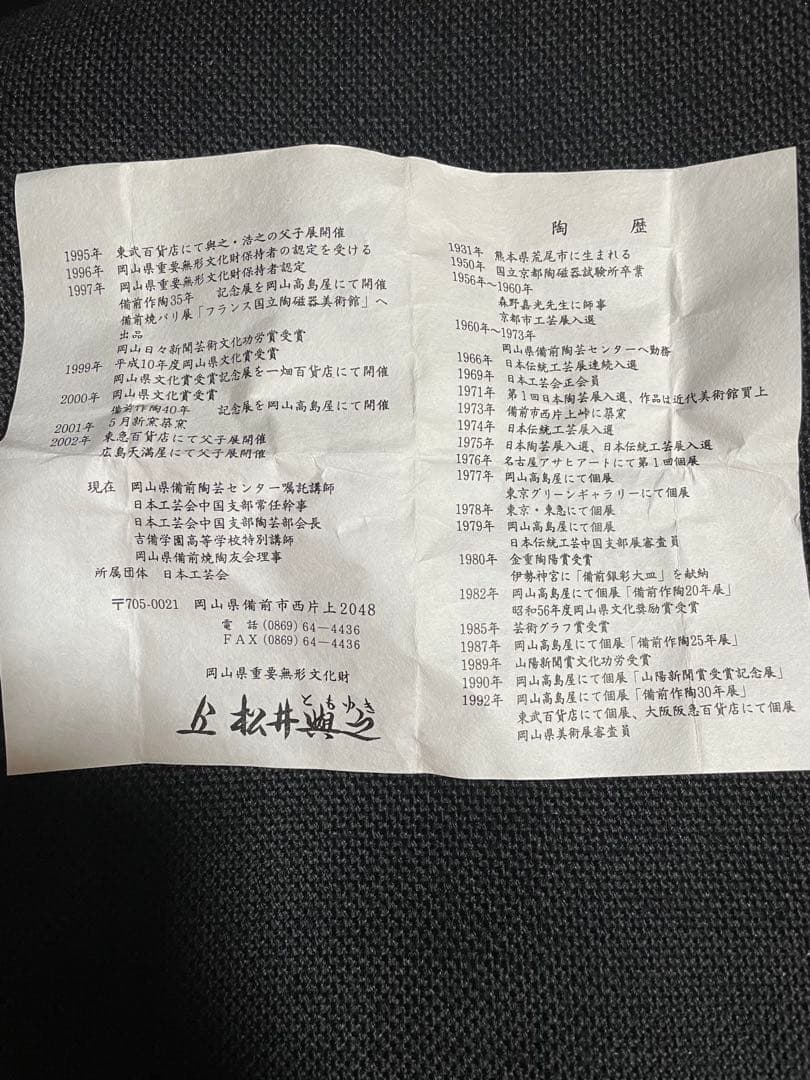 陶歴
1931年 熊本県荒尾市に生まれる
1950年 国立京都陶磁器試験所卒業
1956年〜1960年
森野嘉光先生に師事
京都市工芸展入選
1960年〜1973年
岡山県備前陶芸センターへ勤務
1966年 日本伝統工芸展連続入選
1969年 日本工芸会正会員
1971年 第1回日本陶芸展入選、作品は近代美術館買上
1973年 備前市西片上峠に築窯
1974年 日本伝統工芸展入選
1975年 日本陶芸展入選、日本伝統工芸展入選
1976年 名古屋アサヒアートにて第1回個展
1977年 岡山高島屋にて個展
東京グリーンギャラリーにて個展
1978年 東京・東急にて個展
1979年 岡山高島屋にて個展
日本伝統工芸中国支部展審査員
1980年 金重陶陽賞受賞
伊勢神宮に「備前銀彩大皿」を献納
1982年 岡山高島屋にて個展「備前作陶20年展」
昭和56年度岡山県文化奨励賞受賞
1985年 芸術グラフ賞受賞
1987年 岡山高島屋にて個展「備前作陶25年展」
1989年 山陽新聞賞文化功労受賞
1990年 岡山高島屋にて個展「山陽新聞賞受賞記念展」
1992年 岡山高島屋にて個展「備前作陶30年展」
東武百貨店にて個展、大阪阪急百貨店にて個展
岡山県美術展審査員
1995年 東武百貨店にて與之・浩之の父子展開催
1996年 岡山県重要無形文化財保持者の認定を受ける
1997年 岡山県重要無形文化財保持者認定
備前作陶35年 記念展を岡山高島屋にて開催
備前焼パリ展「フランス国立陶磁器美術館」へ
出品
岡山日々新聞芸術文化功労賞受賞
1999年 平成10年度岡山県文化賞受賞
岡山県文化賞受賞記念展を一畑百貨店にて開催
2000年 岡山県文化賞受賞
備前作陶40年 記念展を岡山高島屋にて開催
2001年 5月新窯築窯
2002年 東急百貨店にて父子展開催
広島天満屋にて父子展開催
現在 岡山県備前陶芸センター嘱託講師
日本工芸会中国支部常任幹事
日本工芸会中国支部陶芸部会長
吉備学園高等学校特別講師
岡山県備前焼陶友会理事
所属団体 日本工芸会
〒705-0021 岡山県備前市西片上2048
電話 (0869) 64—4436
FAX (0869) 64—4436
岡山県重要無形文化財
ともゆき
松井與之